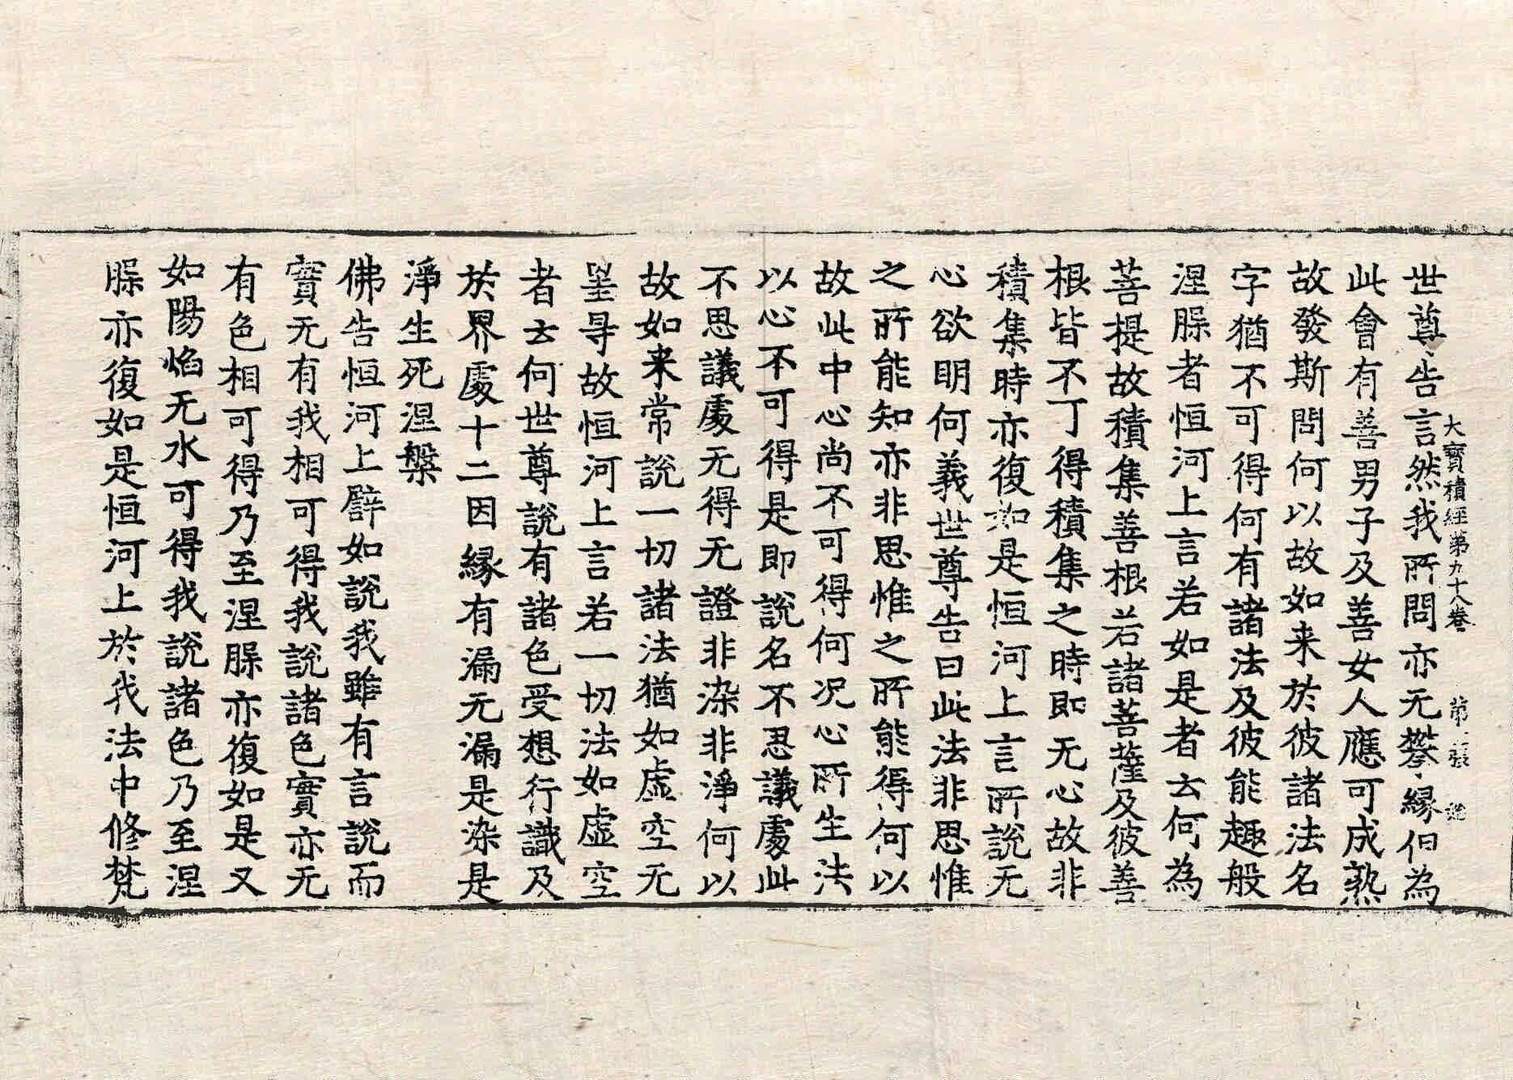 大寶積經第九十八卷 第 張
世尊告言然我所問亦无攀緣但為
此會有善男子及善女人應可成熟
故發斯問何以故如来於彼諸法名
字猶不可得何有諸法及彼能趣般
涅㬳者恒河上言若如是者云何為
菩提故積集善根若諸菩薩及彼善
根皆不可得積集之時即无心故非
積集時亦復如是恒河上言所說无
心欲明何義世尊告曰此法非思惟
之所能知亦非思惟之所能得何以
故此中心尚不可得何况心所生法
以心不可得是即說名不思議處此
不思議處无得无證非染非淨何以
故如来常說一切諸法猶如虛空无
罣㝵故恒河上言若一切法如虛空
者云何世尊說有諸色受想行識及
於界處十二因緣有漏无漏是染是
淨生死涅槃
佛告恒河上譬如說我雖有言說而
實无有我相可得我說諸色實亦无
有色相可得乃至涅㬳亦復如是又
如陽焰无水可得我說諸色乃至涅
㬳亦復如是恒河上於我法中修梵